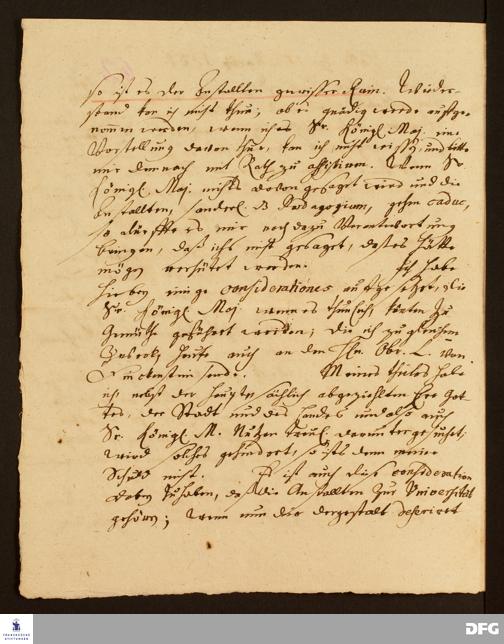 so ist es der Anstallten gewisser Ruin. Wieder-
stand kan ich nicht thun; ob es gnädig werde aufge-
nommen werden, wenn ich es Sr. Königl. Maj. eine
Vorstellung davon thue, kan ich nicht wissen, und bitte
mir dennoch mit Rath zu assistiren. Wenn Sr.
Königl. Maj. nichts davon gesaget wird und die
Anstallten, sonderl. das Pædagogium, gehen caduc,
so dürffte es mir noch dazu Verantwortung
bringen, daß ichs nicht gesaget, da es hätte
mögen verhütet werden. Ich habe
hierbey einige considerationes aufgesetzet, die
Sr. Königl. Maj. wenn es thunlich, könten zu
Gemüthe geführet werden; die ich zu gleichem
Zweck heute auch an den Hn. Obr. L. von
Finckenstein sende. Meines theils habe
ich nebst der hauptsächlich abgezielten Ehre Got-
tes, der Stadt und des Landes und also auch
Sr. Königl. M. Nutzen treul. darunter gesuchet;
wird solches gehindert, so ists denn meine
Schuld nicht. Es ist auch diese consideration
dabey zu haben, daß die Anstallten zur Universität
gehören; wenn nun die dergestalt
FRANCKESCHE
STIFTUNGEN
DFG